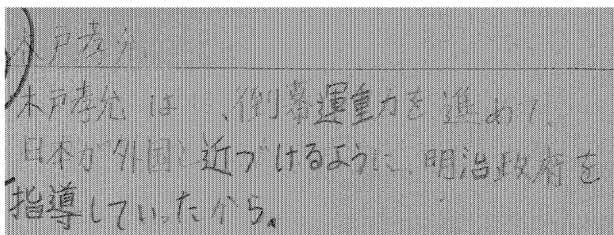 木戸孝允
木戸孝允は、倒幕運動を進めて、
日本が外国に近づけるように、明治政府を
指導していったから。